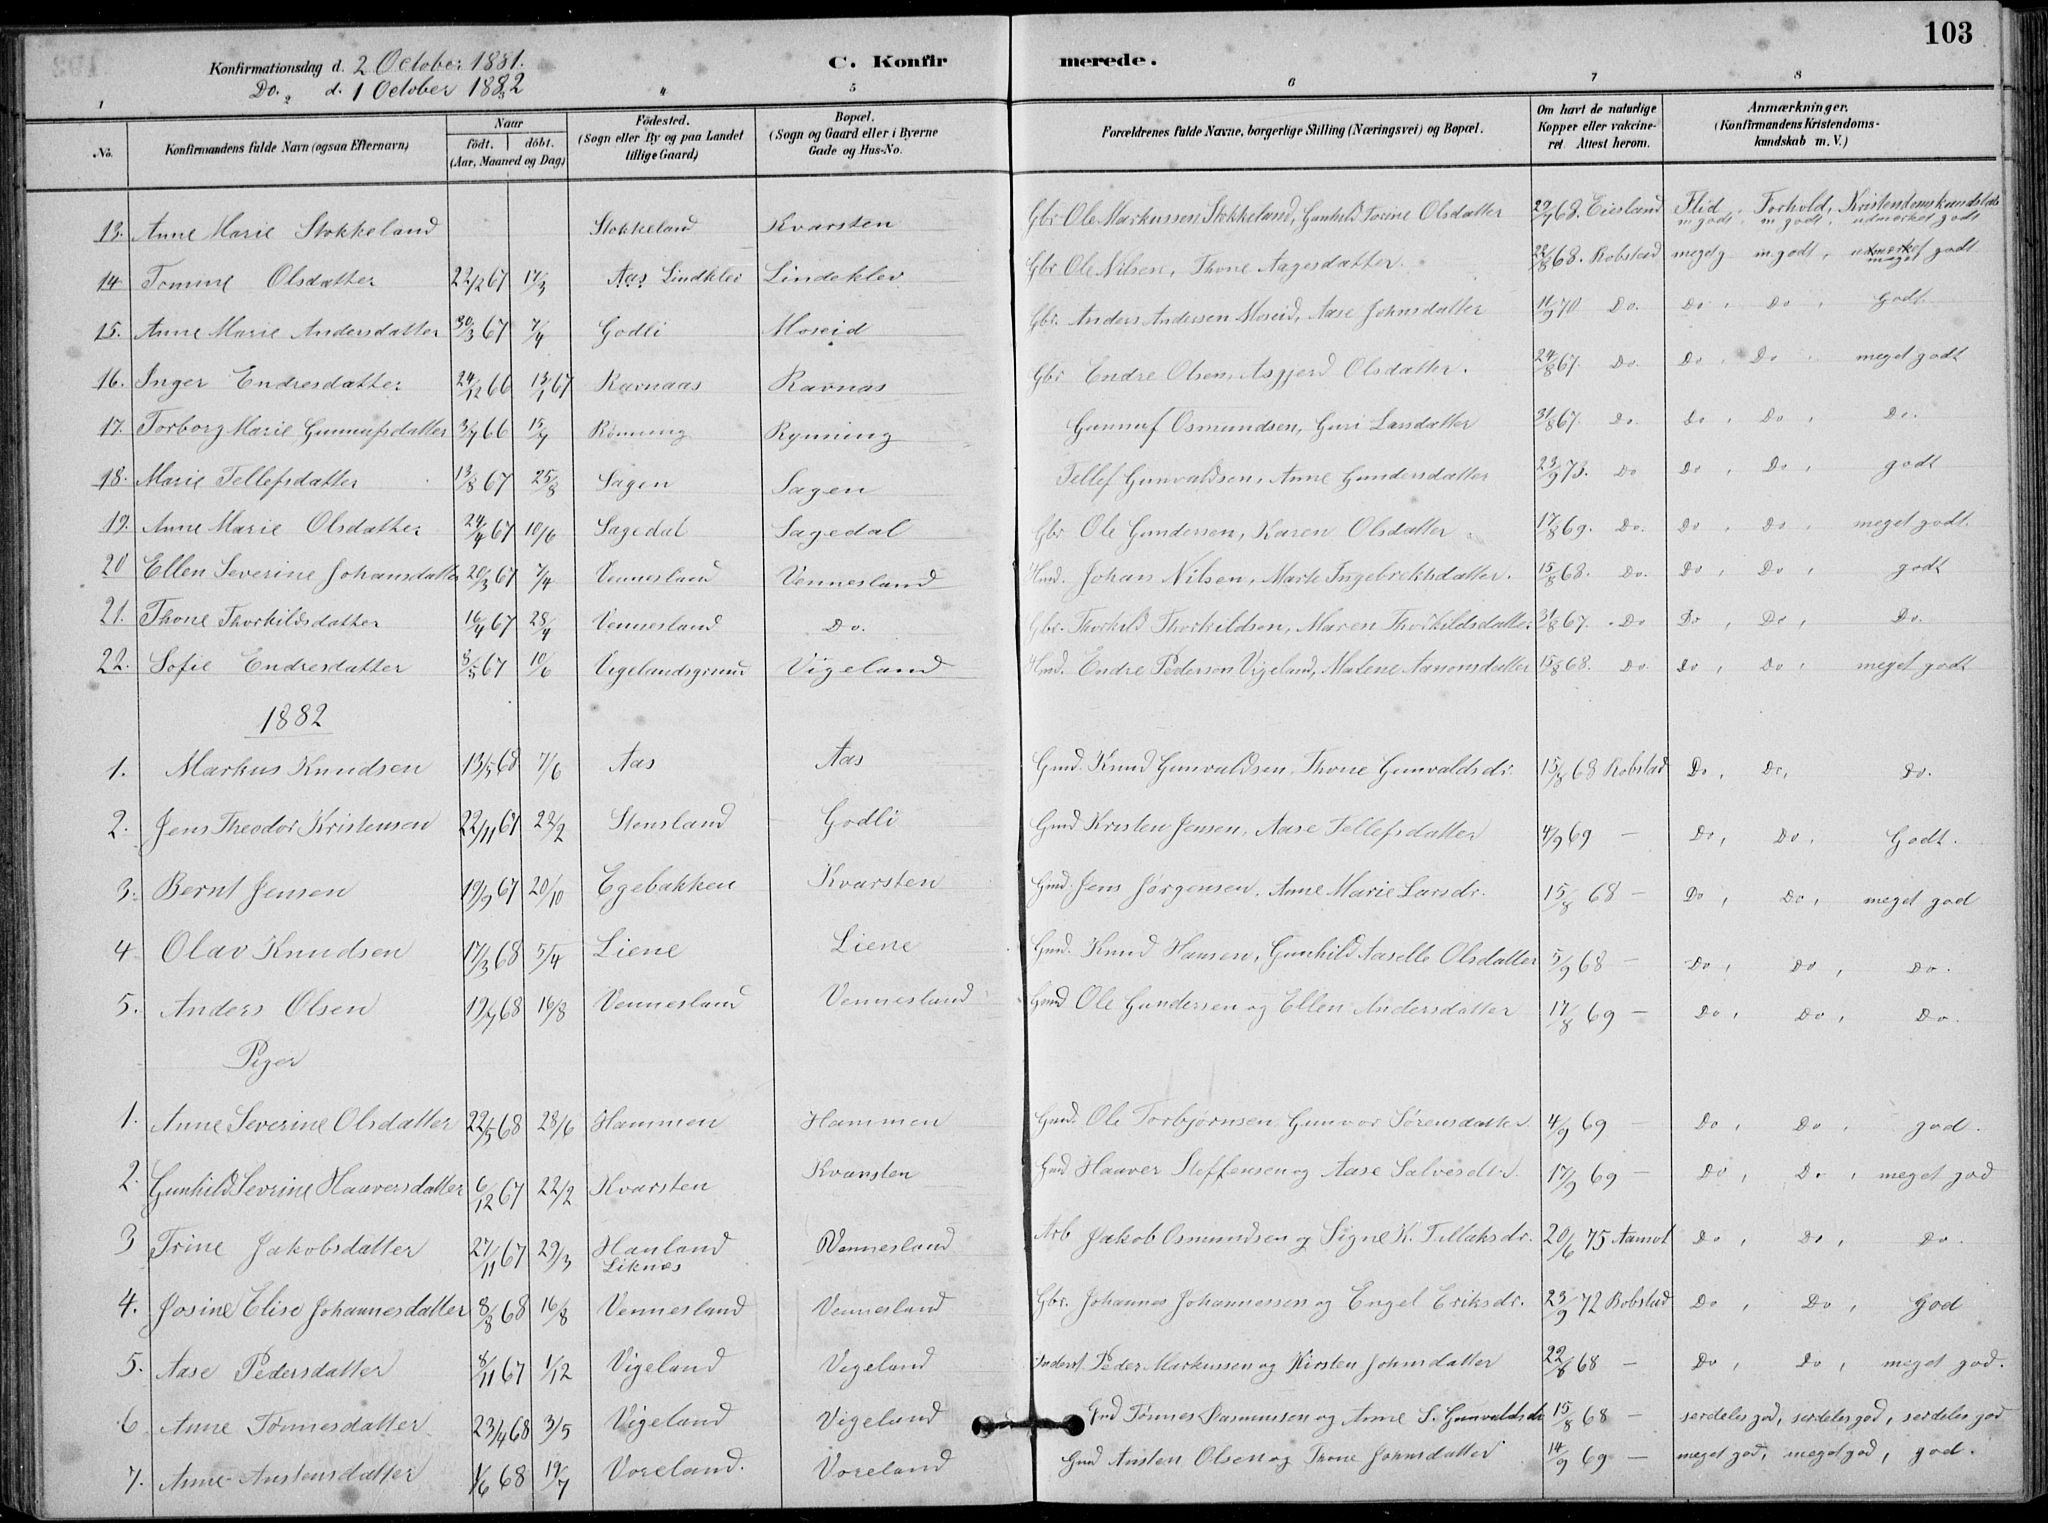 103
Konfirmationsdag d. 2 October 1881. C. Konfirmerede.
Do. d. 1 October 1882
1 2 3 4 5 6 7 8
No. Konfirmandens fulde Navn (ogsaa Efternavn) Naar født. døbt. (Aar, Maaned og Dag) Fødested. (Sogn eller By og paa Landet tillige Gaard) Bopæl. (Sogn og Gaard eller i Byerne Gade og Hus-No. Forældrenes fulde Navne, borgerlige Stilling (Næringsvei) og Bopæl. Om havt de naturlige Kopper eller vakcineret. Attest herom. Anmærkninger. (Konfirmandens Kristendomskundskab m. V.)
13. Anne Marie Stokkeland Stokkeland Kvarsten Gbr. Ole Markussen Stokkeland, Gunhild Torine Olsdatter 29/7 68. Eiesland Flid m godt, Forhold, m godt, Kristendomskundskab udmærket godt
14 Tomine Olsdatter 22/2 67 17/3 Aas Lindklev Lindeklev Gbr. Ole Nilsen, Thone Aagesdatter. 22/8 68. Robstad meget g m godt, meget godt
15. Anne Marie Andersdatter 30/3 67 7/4 Godli Moseid Gbr. Anders Andersen Moseid, Aase Johnsdatter 11/9 70 Do. Do , Do , Godt.
16. Inger Endresdatter 24/12 66 13/1 67 Ravnaas Ravnas Gbr Endre Olsen, Asgjerd Olsdatter. 24/8 67. Do. Do , Do , meget godt
17. Torborg Marie Gunnufsdatter 3/4 66 15/4 Rønning Rynning Gunnuf Osmundsen, Guri Larsdatter 31/8 67. Do. Do , Do , Do.
18. Marie Tellefsdatter 13/8 67 25/8 Sagen Sagen Tellef Gunvaldsen, Anne Gundersdatter 23/9 73. Do Do , Do , godt
19. Anne Marie Olsdatter 24/4 67 10/6 Sagedal Sagedal Gbr Ole Gundersen, Karen Olsdatter 17/8 69. Do. Do , Do , meget godt.
20 Ellen Severine Johansdatter 20/3 67 7/4 Vennesland Vennesland Hmd. Johan Nilsen, Marte Ingebrektsdatter. 15/8 68. Do. Do , Do , godt
21. Thone Thorkildsdatter 16/4 67 28/4 Vennesland Do. Gbr. Thorkild Thorkildsen, Maren Thorkildsdatter 31/8 67. Do Do , Do , Do.
22. Sofie Endresdatter 3/5 67 10/6 Vigelandsgrund Vigeland Hmd. Endre Pedersen Vigeland, Malene Aanonsdatter 15/8 68. Do. Do , Do , meget godt
1882
1. Markus Knudsen 13/5 68 7/6 Aas Aas Gmd. Knud Gunvaldsen, Thone Gunvaldsdr. 15/8 68 Robstad Do , Do, Do.
2. Jens Theodor Kristensen 22/11 67 22/2 Stensland Godli Gmd Kristen Jensen, Aase Tellefsdatter 4/9 69 — Do , Do , Godt.
3. Bernt Jensen 19/9 67 20/10 Egebakken Kvarsten Gmd. Jens Jørgensen, Anne Marie Larsdr. 15/8 68 — Do , Do , meget god
4 Olav Knudsen 17/3 68 5/4 Liene Liene Gmd. Knud Hansen, Gunhild Aaselle Olsdatter 5/9 68 — Do , Do , Do.
5. Anders Olsen 19/7 68 16/8 Vennesland Vennesland Gmd Ole Gundersen og Ellen Andersdatter 17/8 69 — Do , Do , Do.
Piger
1. Anne Severine Olsdatter 22/5 68 28/6 Hammen Hammen Gmd. Ole Torbjørnsen, Gunvor Sørensdatter 4/9 69 — Do , Do , god.
2. Gunhild Sevrine Haaversdatter 6/12 67 22/2 Kvarsten Kvarsten Gmd Haaver Steffensen og Aase Salvesdtr. 17/9 69 — Do , Do , meget god
3 Trine Jakobsdatter 27/11 67 29/3 Hanland Liknes Vennesland Arb Jakob Osmundsen og Signe K. Tellaksdr. 20/6 75 Aamot Do , Do , Do.
4. Josine Elise Johannesdatter 8/8 68 16/8 Vennesland Vennesland Gbr. Johannes Johannessen og Engel Eriksdr. 23/9 72 Robstad Do , Do , God
5. Aase Pedersdatter 8/11 67 1/12 Vigeland Vigeland Inderst Peder Markussen og Kirsten Johnsdatter 22/8 68 — Do , Do , meget god.
6 Anne Tønnesdatter 23/4 68 3/5 Vigeland Vigeland Gmd Tønnes Rasmussen og Anne S. Gunvaldsdr 15/8 68 — serdeles god, serdeles god, serdeles god
7. Anne Austensdatter 1/6 68 19/7 Voreland. Voreland Gmd Austen Olsen og Thone Johnsdatter 14/9 69 — meget god, meget god, god.